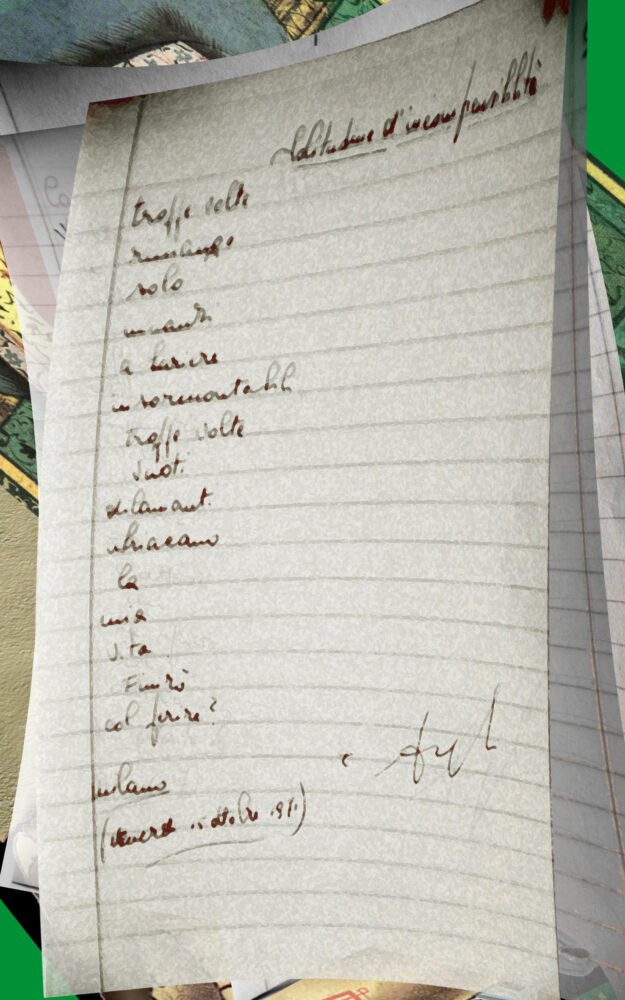 Solitudine d'incompatibilità
troppe volte
rimango
solo
innanzi
a barriere
insormontabili
troppe volte
vuoti
dilanianti
ubriacano
la
mia
vita
Finirò
col ferire?
Milano
(venerdì 15 ottobre 1971)